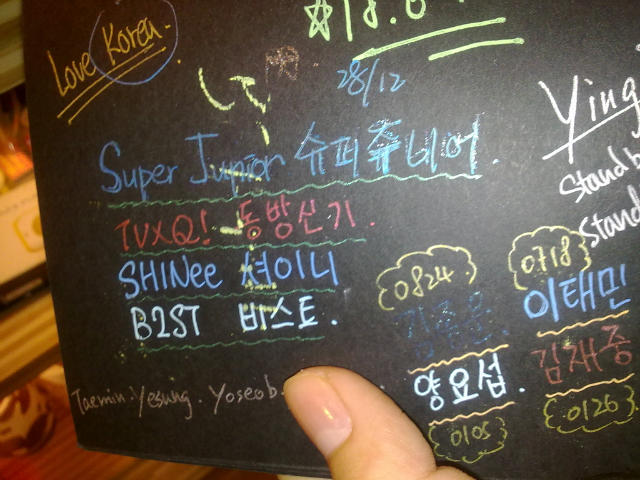 Love Korea.
28/12
Super Junior 슈퍼쥬니어.
TVXQ! 동방신기.
SHINee 셔이니
B2ST 비스트.
Taemin. Yesung. Yoseob.
Ying
Stand
Stand
0824
김종운
양요섭.
0105
0718
이태민
김재중
0126